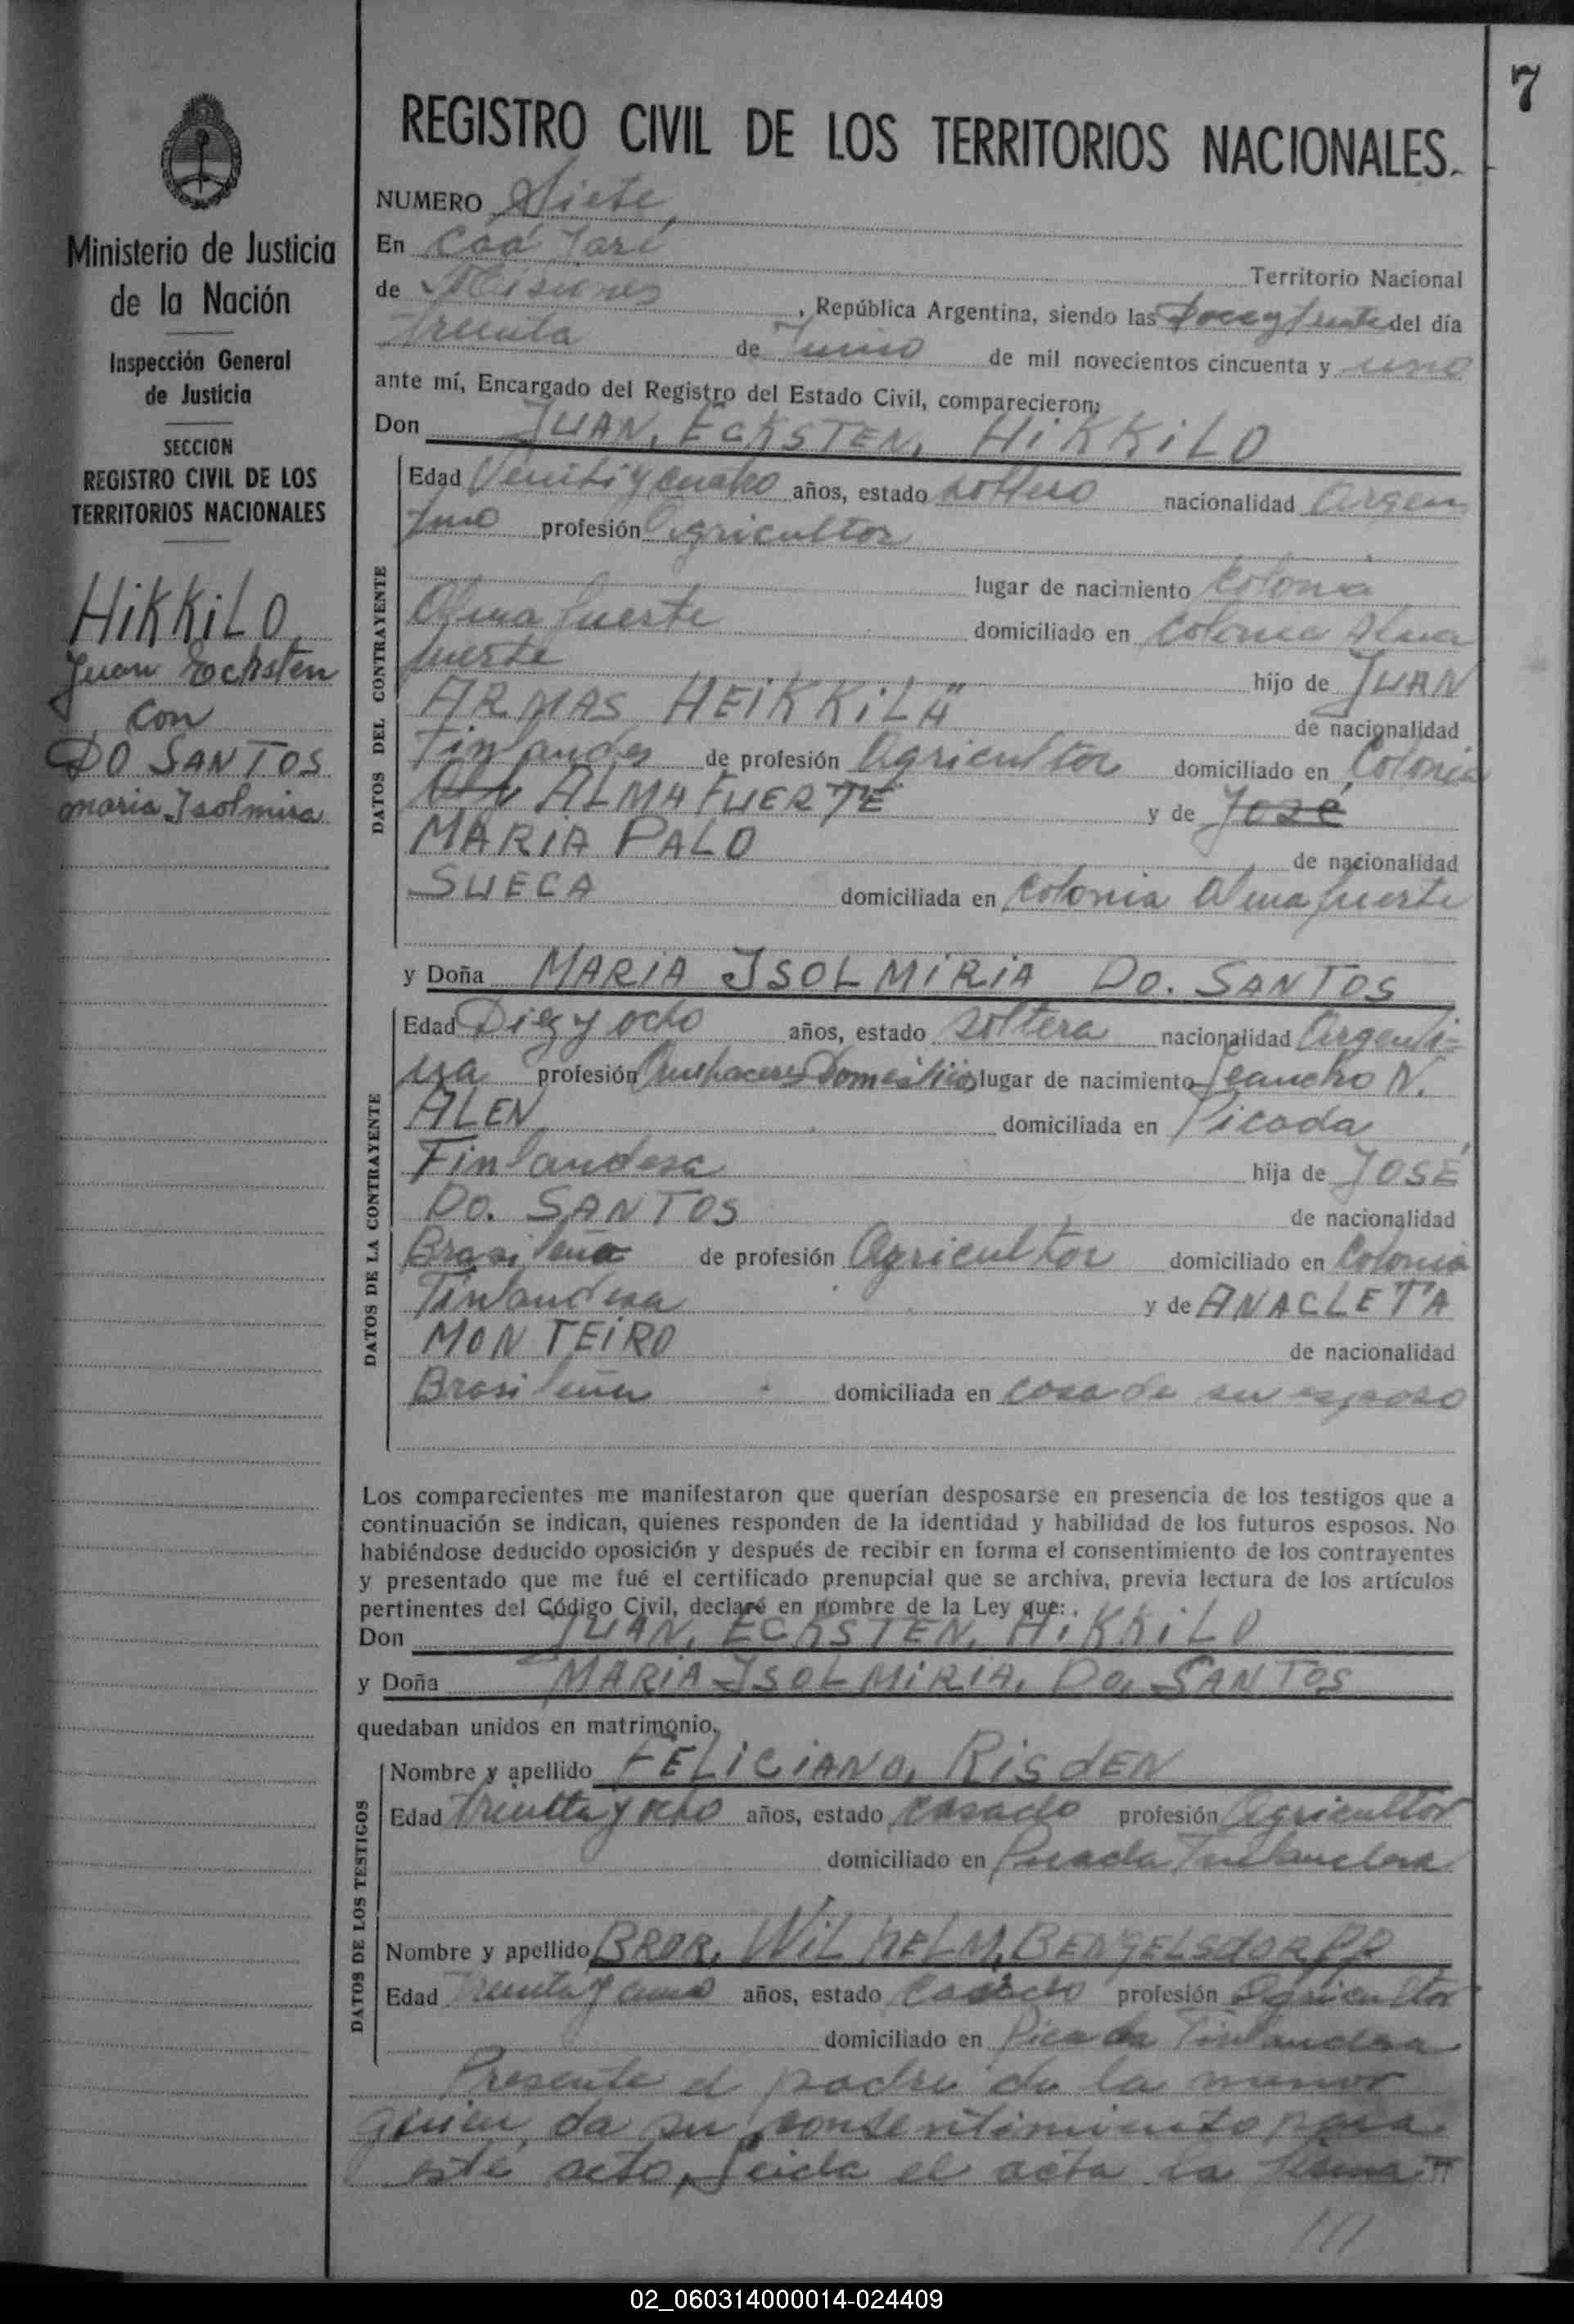 7
REGISTRO CIVIL DE LOS TERRITORIOS NACIONALES.
Ministerio de Justicia
de la Nación
Inspección General
de Justicia
SECCION
REGISTRO CIVIL DE LOS
TERRITORIOS NACIONALES
HiKKiLO
Juan Ecksten
con
DO SANTOS
Maria Isolmira
NUMERO Siete,
En Caá Yarí
Territorio Nacional
de Misiones, República Argentina, siendo las Doce y treinta del día
treinta de Junio de mil novecientos cincuenta y uno
ante mí, Encargado del Registro del Estado Civil, comparecieron:
Don JUAN, ECKSTEN, HiKKiLO
DATOS DEL CONTRAYENTE
Edad Veinti y cuatro años, estado soltero nacionalidad Argen
tino profesión agricultor
lugar de nacimiento Colonia
Alma fuerte domiciliado en Colonia Alma
fuerte hijo de JUAN
ARMAS HEiKKiLÄ de nacionalidad
Finlandes de profesión Agricultor domiciliado en Colonia
ALMA FUERTE y de José
MARiA PALO de nacionalidad
SUECA domiciliada en Colonia Alma fuerte
y Doña MARiA ISOLMiRiA DO. SANTOS
DATOS DE LA CONTRAYENTE
Edad Diez y ocho años, estado soltera nacionalidad Argenti-
na profesión Quehaceres Domesticos lugar de nacimiento Leancho N.
ALEN domiciliada en Picada
Finlandesa hija de JOSÉ
DO. SANTOS de nacionalidad
Brasileña de profesión Agricultor domiciliado en Colonia
Finlandesa y de ANACLETA
MONTEiRO de nacionalidad
Brasileña domiciliada en casa de su esposo
Los comparecientes me manifestaron que querían desposarse en presencia de los testigos que a
continuación se indican, quienes responden de la identidad y habilidad de los futuros esposos. No
habiéndose deducido oposición y después de recibir en forma el consentimiento de los contrayentes
y presentado que me fué el certificado prenupcial que se archiva, previa lectura de los artículos
pertinentes del Código Civil, declaré en nombre de la Ley que:
Don JUAN, ECKSTEN, HiKKiLO
y Doña MARiA ISOLMiRiA, DO, SANTOS
quedaban unidos en matrimonio.
DATOS DE LOS TESTIGOS
Nombre y apellido FELiCiANO, RiSdEN
Edad treinta y ocho años, estado casado profesión Agricultor
domiciliado en Picada Finlandesa
Nombre y apellido BROR, WiLhELM, BENGELSdORFF
Edad treinta y años, estado casado profesión Agricultor
domiciliado en Picada Finlandesa
Presente el padre de la menor
quien da su consentimiento para
este acto, Leida el acta la
02_060314000014-024409